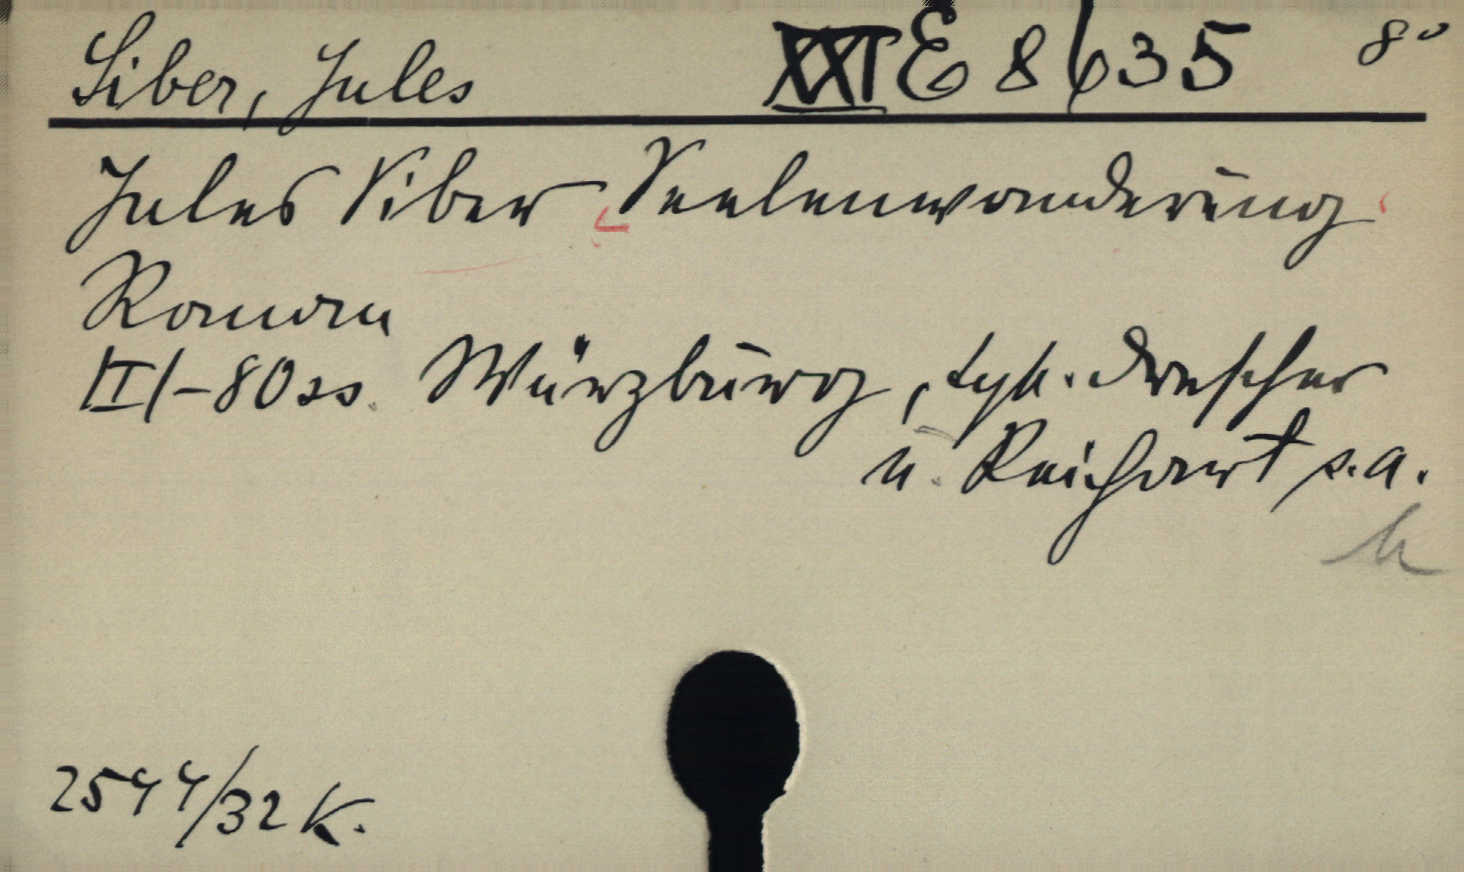 Siber, Jules XXI E 8635 8°
Jules Siber Seelenwanderung
Roman
II/-80 ss. Würzburg, typ. Drescher
u. Reichart s.a.
2544/32 K.